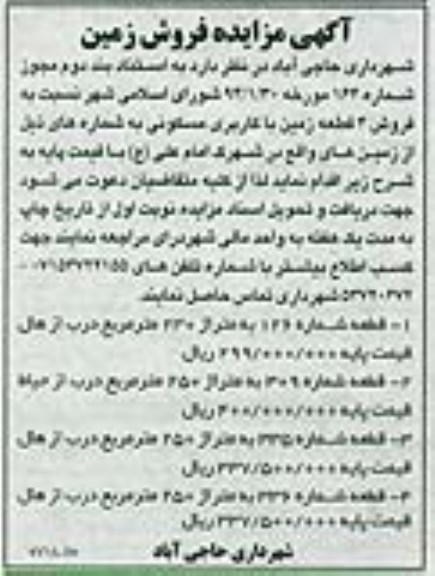 آگهی مزایده فروش زمین
شهرداری حاجی آباد در نظر دارد به استناد بند دوم مجوز
شماره ۱۶۳ مورخه ۹۲/۱/۳۰ شورای اسلامی شهر نسبت به
فروش ۴ قطعه زمین با کاربری مسکونی به شماره های ذیل
از زمین های واقع در شهرک امام علی (ع) با قیمت پایه به
شرح زیر اقدام نماید لذا از کلیه متقاضیان دعوت می شود
جهت دریافت و تحویل اسناد مزایده نوبت اول از تاریخ چاپ
به مدت یک هفته به واحد مالی شهرداری مراجعه نمایند جهت
کسب اطلاع بیشتر با شماره تلفن های ۰۷۱۵۳۷۲۲۱۵۵ -
۵۳۷۲۰۳۷۲ شهرداری تماس حاصل نمایند.
۱- قطعه شماره ۱۲۶ به متراژ ۲۳۰ مترمربع درب از هال
قیمت پایه ۲۹۹/۰۰۰/۰۰۰ ریال
۲- قطعه شماره ۳۰۹ به متراژ ۲۵۰ مترمربع درب از حیاط
قیمت پایه ۴۰۰/۰۰۰/۰۰۰ ریال
۳- قطعه شماره ۳۳۵ به متراژ ۲۵۰ مترمربع درب از هال
قیمت پایه ۳۳۷/۵۰۰/۰۰۰ ریال
۴- قطعه شماره ۳۳۶ به متراژ ۲۵۰ مترمربع درب از هال
قیمت پایه ۳۳۷/۵۰۰/۰۰۰ ریال
شهرداری حاجی آباد